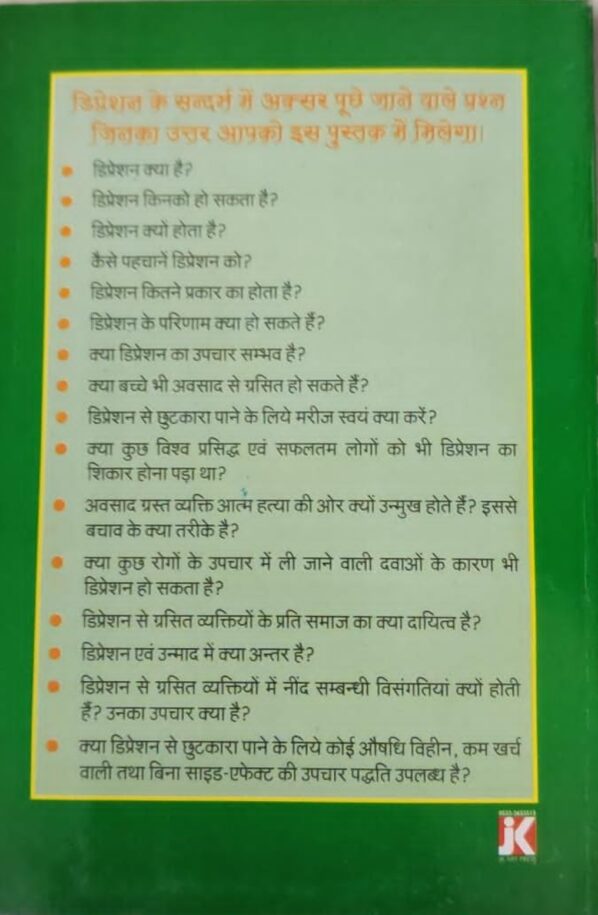 डिप्रेशन के सन्दर्भ में अक्सर पूछे जाने वाले प्रश्न
जिनका उत्तर आपको इस पुस्तक में मिलेगा।
• डिप्रेशन क्या है?
• डिप्रेशन किनको हो सकता है?
• डिप्रेशन क्यों होता है?
• कैसे पहचानें डिप्रेशन को?
• डिप्रेशन कितने प्रकार का होता है?
• डिप्रेशन के परिणाम क्या हो सकते हैं?
• क्या डिप्रेशन का उपचार सम्भव है?
• क्या बच्चे भी अवसाद से ग्रसित हो सकते हैं?
• डिप्रेशन से छुटकारा पाने के लिये मरीज स्वयं क्या करें?
• क्या कुछ विश्व प्रसिद्ध एवं सफलतम लोगों को भी डिप्रेशन का
शिकार होना पड़ा था?
• अवसाद ग्रस्त व्यक्ति आत्म हत्या की ओर क्यों उन्मुख होते हैं? इससे
बचाव के क्या तरीके है?
• क्या कुछ रोगों के उपचार में ली जाने वाली दवाओं के कारण भी
डिप्रेशन हो सकता है?
• डिप्रेशन से ग्रसित व्यक्तियों के प्रति समाज का क्या दायित्व है?
• डिप्रेशन एवं उन्माद में क्या अन्तर है?
• डिप्रेशन से ग्रसित व्यक्तियों में नींद सम्बन्धी विसंगतियां क्यों होती
हैं? उनका उपचार क्या है?
• क्या डिप्रेशन से छुटकारा पाने के लिये कोई औषधि विहीन, कम खर्च
वाली तथा बिना साइड-एफेक्ट की उपचार पद्धति उपलब्ध है?
jK